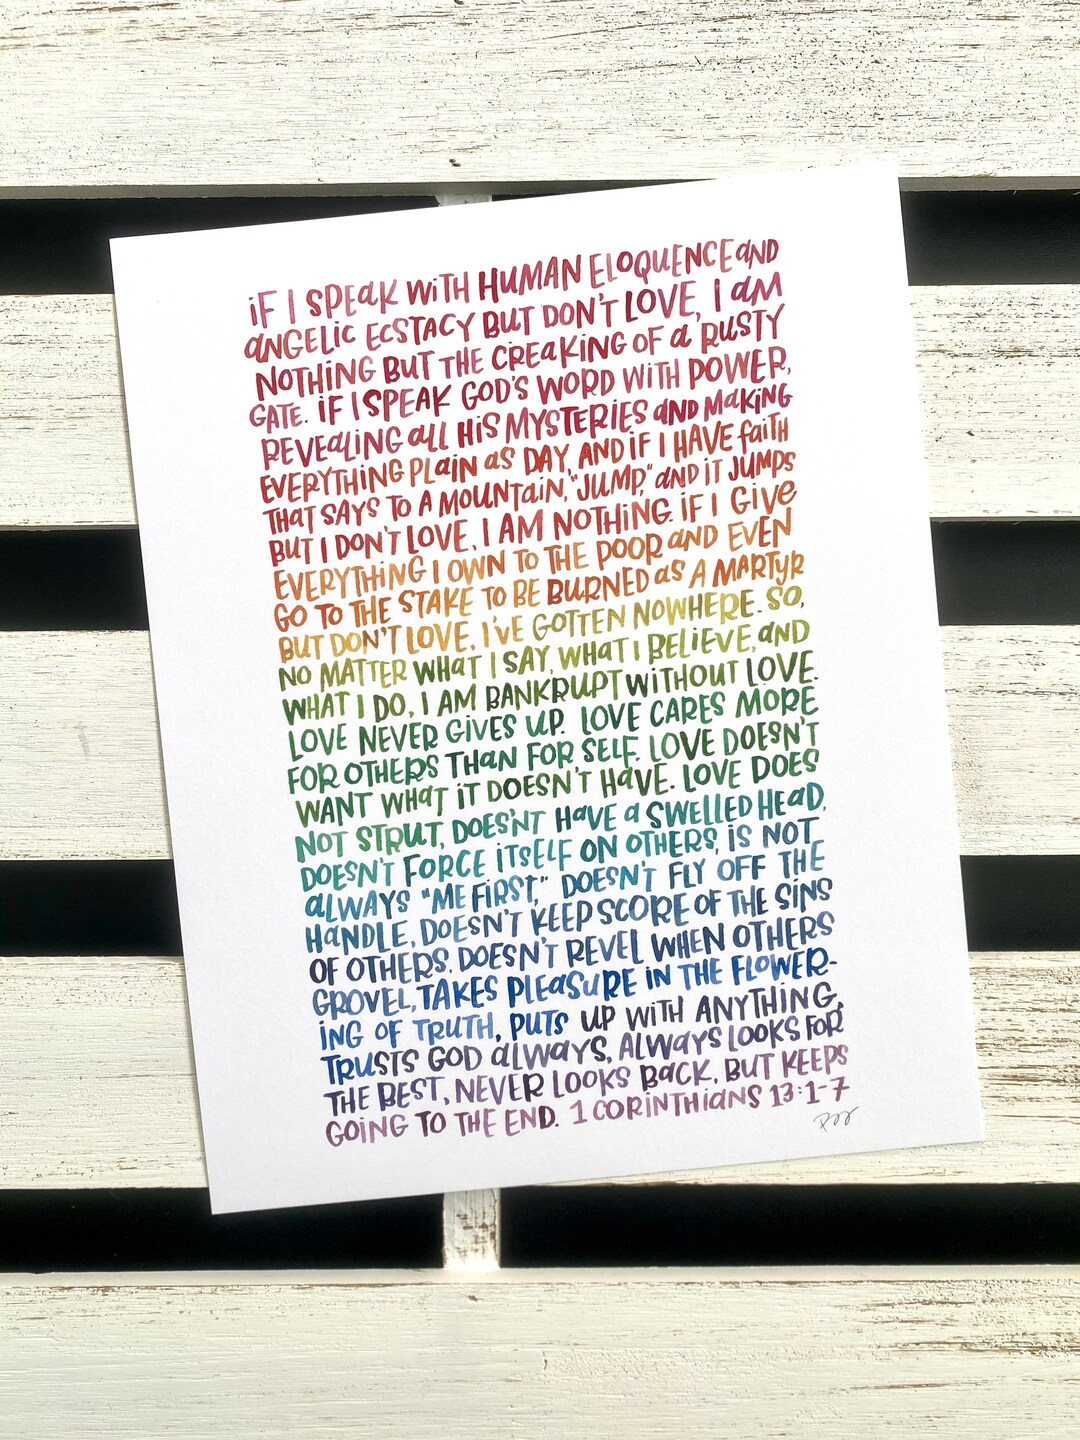 iF I SPEAK WITH HUMAN ELOQUENCE AND
ANGELIC ECSTACY BUT DON'T LOVE, I AM
NOTHING BUT THE CREAKING OF A RUSTY
GATE. IF I SPEAK GOD'S WORD WITH POWER,
REVEALING ALL HIS MYSTERIES AND MAKING
EVERYTHING PLAIN AS DAY, AND IF I HAVE FAITH
THAT SAYS TO A MOUNTAIN, "JUMP," AND IT JUMPS
BUT I DON'T LOVE, I AM NOTHING. IF I GIVE
EVERYTHING I OWN TO THE POOR AND EVEN
GO TO THE STAKE TO BE BURNED AS A MARTYR
BUT DON'T LOVE, I'VE GOTTEN NOWHERE. SO,
NO MATTER WHAT I SAY, WHAT I BELIEVE, AND
WHAT I DO, I AM BANKRUPT WITHOUT LOVE.
LOVE NEVER GIVES UP. LOVE CARES MORE
FOR OTHERS THAN FOR SELF. LOVE DOESN'T
WANT WHAT IT DOESN'T HAVE. LOVE DOES
NOT STRUT, DOES'NT HAVE A SWELLED HEAD,
DOESN'T FORCE ITSELF ON OTHERS, IS NOT
ALWAYS "ME FIRST," DOESN'T FLY OFF THE
HANDLE, DOESN'T KEEP SCORE OF THE SINS
OF OTHERS, DOESN'T REVEL WHEN OTHERS
GROVEL, TAKES PLEASURE IN THE FLOWER-
ING OF TRUTH, PUTS UP WITH ANYTHING,
TRUSTS GOD ALWAYS, ALWAYS LOOKS FOR
THE BEST, NEVER LOOKS BACK, BUT KEEPS
GOING TO THE END. 1 CORINTHIANS 13:1-7